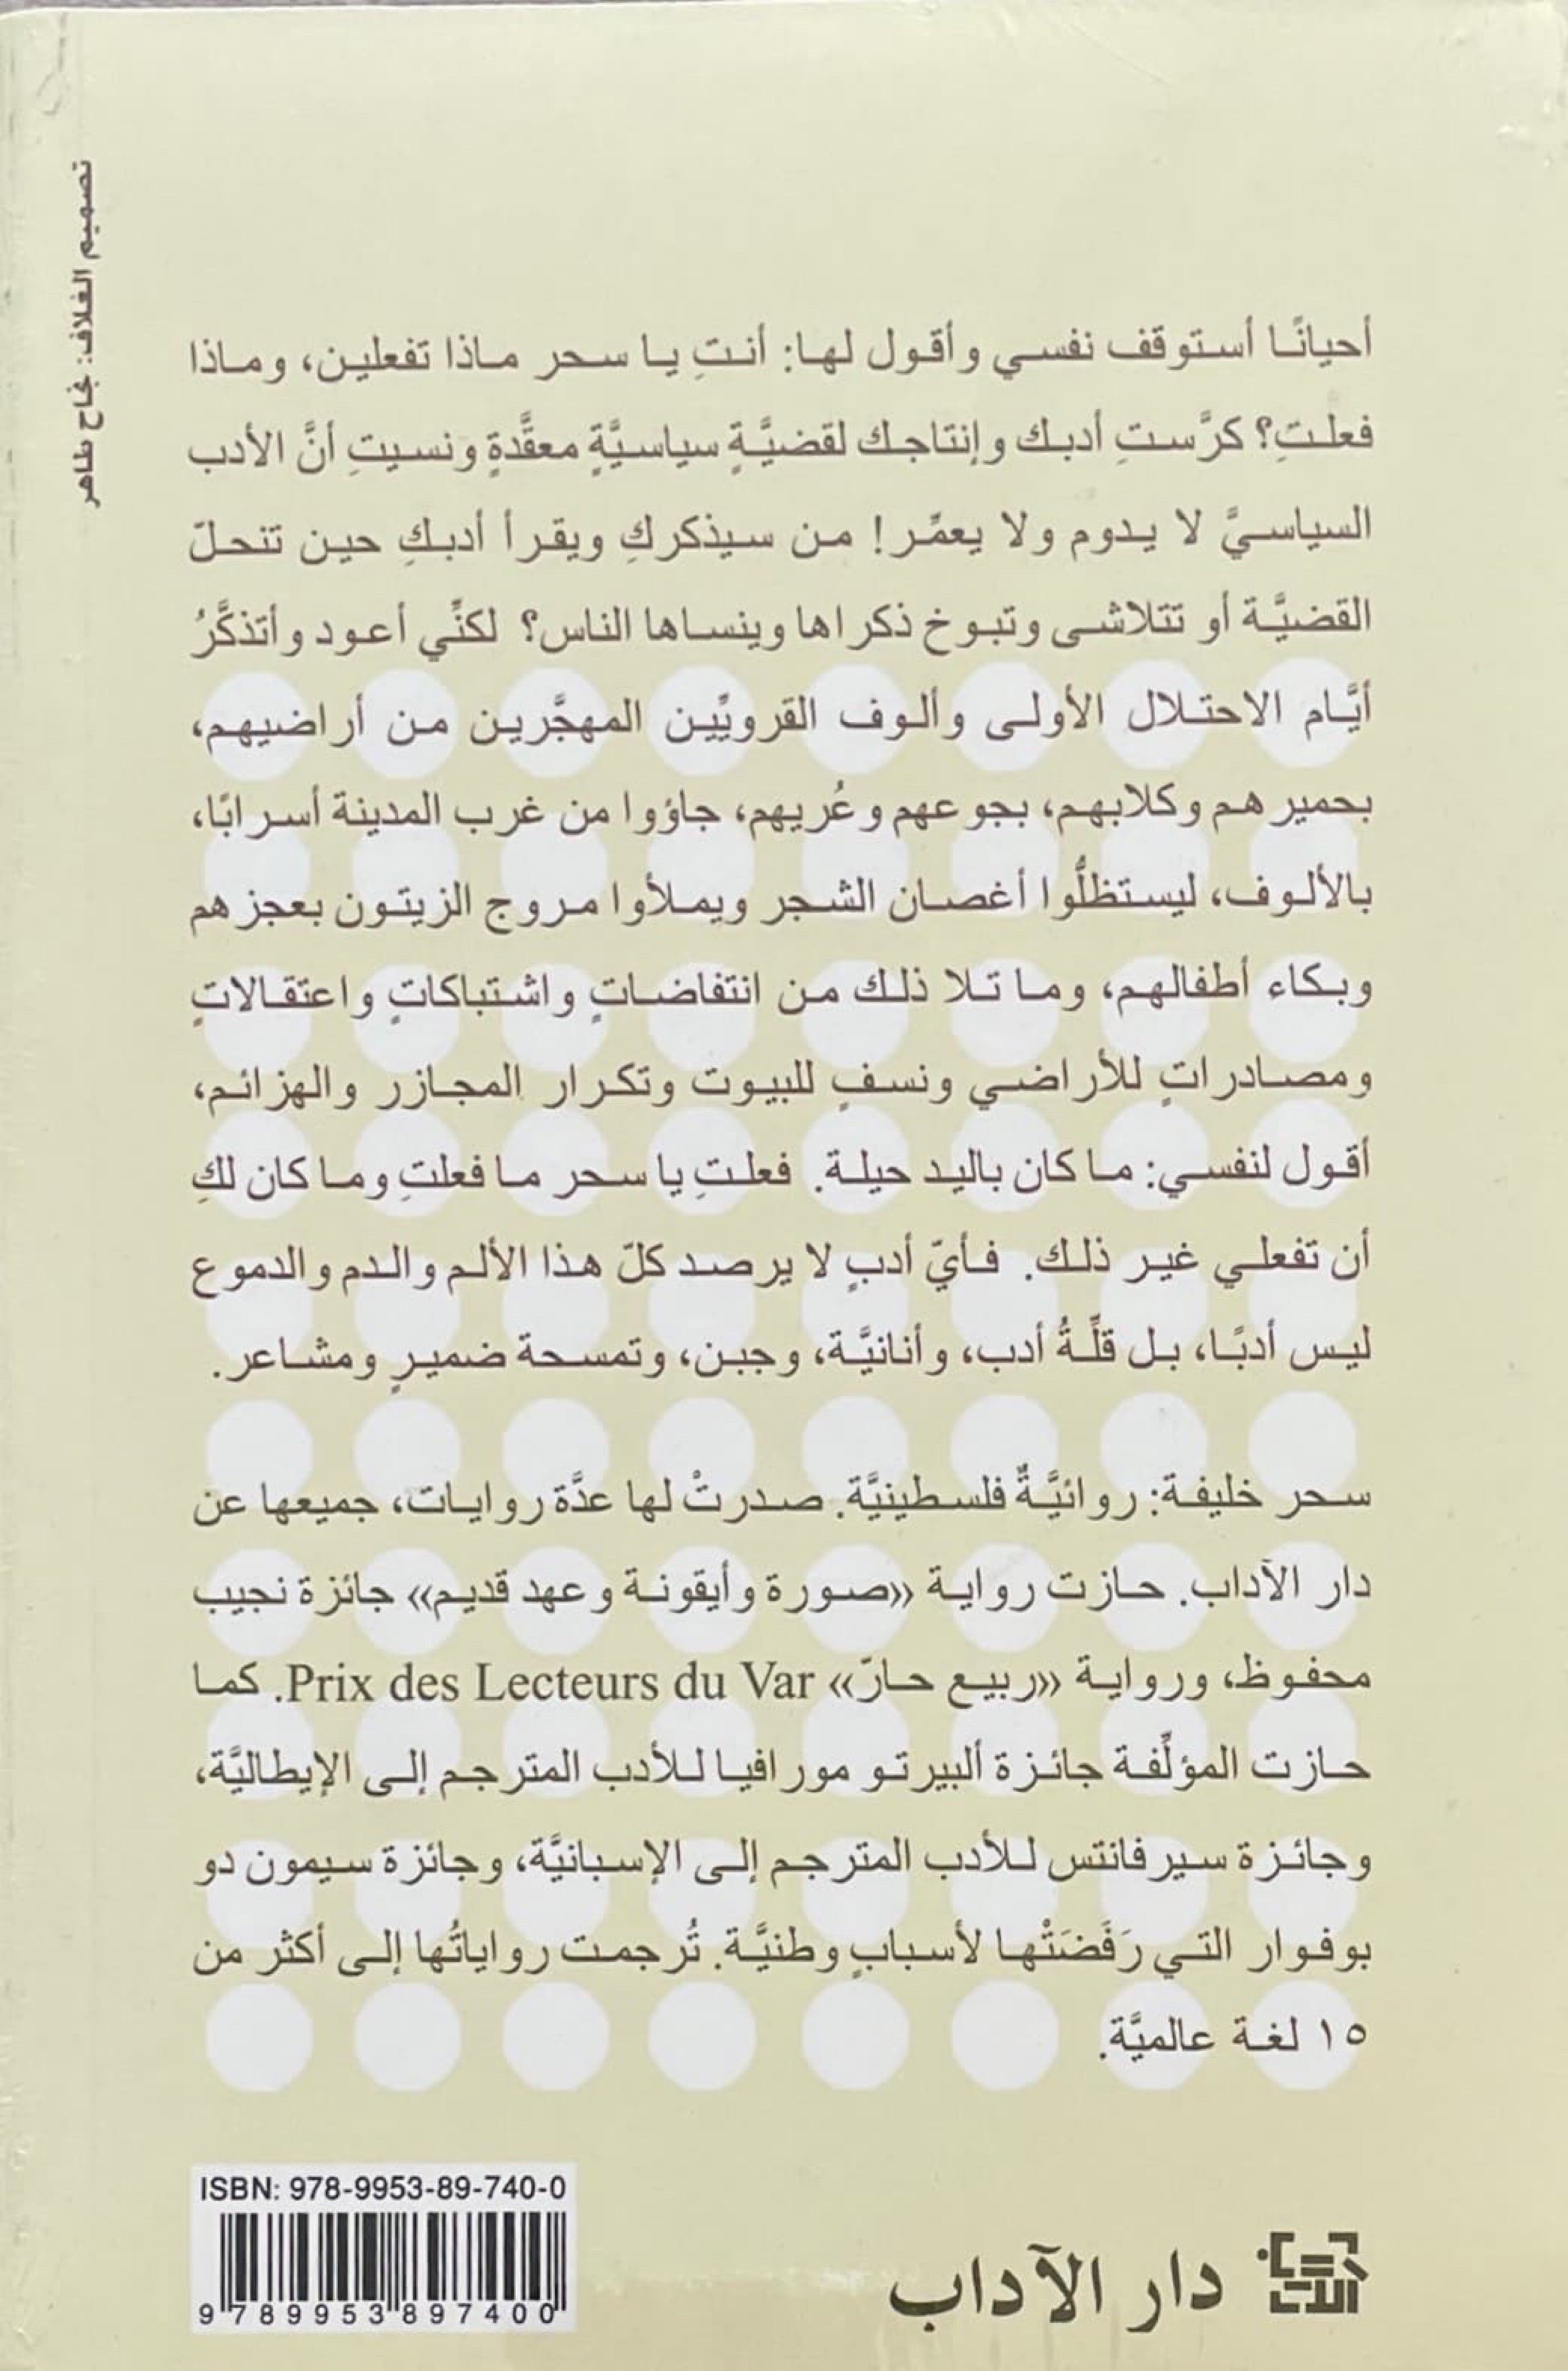 تصميم الغلاف: نجاح طاهر
أحيانًا أستوقف نفسي وأقول لها: أنتِ يا سحر ماذا تفعلين، وماذا
فعلتِ؟ كرَّستِ أدبك وإنتاجك لقضيَّةٍ سياسيَّةٍ معقَّدةٍ ونسيتِ أنَّ الأدب
السياسيَّ لا يدوم ولا يعمِّر! من سيذكركِ ويقرأ أدبكِ حين تنحلّ
القضيَّة أو تتلاشى وتبوخ ذكراها وينساها الناس؟ لكنِّي أعود وأتذكَّرُ
أيَّام الاحتلال الأولى وألوف القرويِّين المهجَّرين من أراضيهم،
بحميرهم وكلابهم، بجوعهم وعُريهم، جاؤوا من غرب المدينة أسرابًا،
بالألوف، ليستظلُّوا أغصان الشجر ويملأوا مروج الزيتون بعجزهم
وبكاء أطفالهم، وما تلا ذلك من انتفاضاتٍ واشتباكاتٍ واعتقالاتٍ
ومصادراتٍ للأراضي ونسفٍ للبيوت وتكرار المجازر والهزائم،
أقول لنفسي: ما كان باليد حيلة. فعلتِ يا سحر ما فعلتِ وما كان لكِ
أن تفعلي غير ذلك. فأيّ أدبٍ لا يرصد كلّ هذا الألم والدم والدموع
ليس أدبًا، بل قلَّةُ أدب، وأنانيَّة، وجبن، وتمسحة ضميرٍ ومشاعر.
سحر خليفة: روائيَّةٌ فلسطينيَّة. صدرتْ لها عدَّة روايات، جميعها عن
دار الآداب. حازت رواية «صورة وأيقونة وعهد قديم» جائزة نجيب
محفوظ، ورواية «ربيع حارّ» Prix des Lecteurs du Var. كما
حازت المؤلِّفة جائزة ألبيرتو مورافيا للأدب المترجم إلى الإيطاليَّة،
وجائزة سيرفانتس للأدب المترجم إلى الإسبانيَّة، وجائزة سيمون دو
بوفوار التي رَفَضَتْها لأسبابٍ وطنيَّة. تُرجمت رواياتُها إلى أكثر من
١٥ لغة عالميَّة.
ISBN: 978-9953-89-740-0
9 789953 897400
دار الآداب